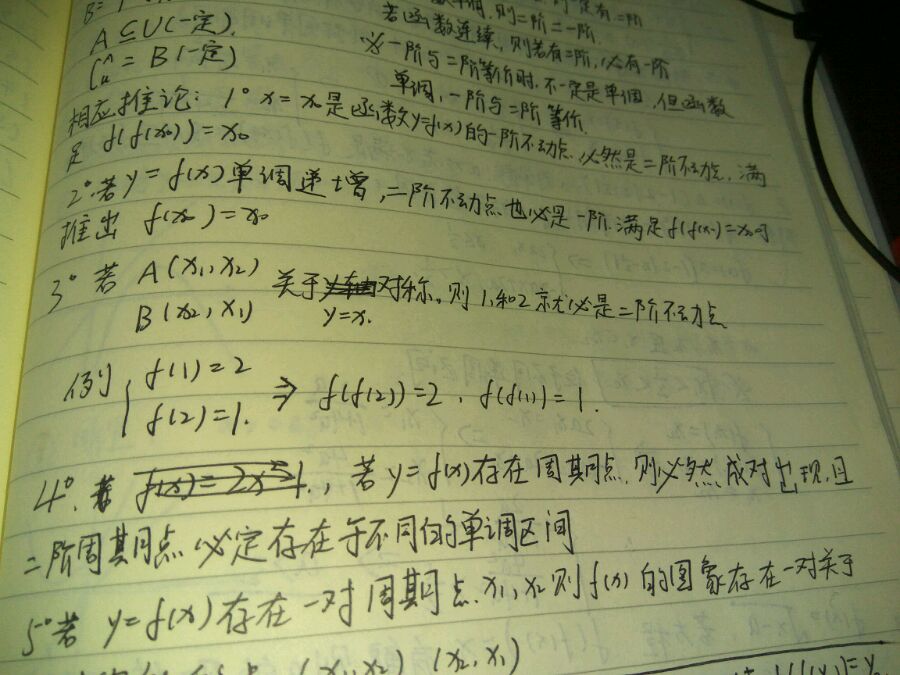 A⊆U(一定).
= B(一定)
则二阶=一阶.
若函数连续,则若有二阶,必有一阶
一阶与二阶等价时,不一定是单调,但函数
单调,一阶与二阶等价.
相应推论: 1° x=x₀是函数y=f(x)的一阶不动点,必然是二阶不动点,满
足 f(f(x₀))=x₀
2°若y=f(x)单调递增,二阶不动点也必是一阶.满足f(f(x₀)=x₀可
推出 f(x₀)=x₀
3° 若 A(x₁,x₂)
B(x₂,x₁)
关于 对称。则1和2就必是二阶不动点
y=x.
例 f(1)=2
f(2)=1. ⇒ f(f(2))=2, f(f(1))=1.
4°. 若y=f(x)存在周期点.则必然成对出现,且
二阶周期点必定存在于不同的单调区间
5°若 y=f(x)存在一对周期点x₁,x₂则f(x)的图象存在一对关于
(x₁,x₂) (x₂,x₁)